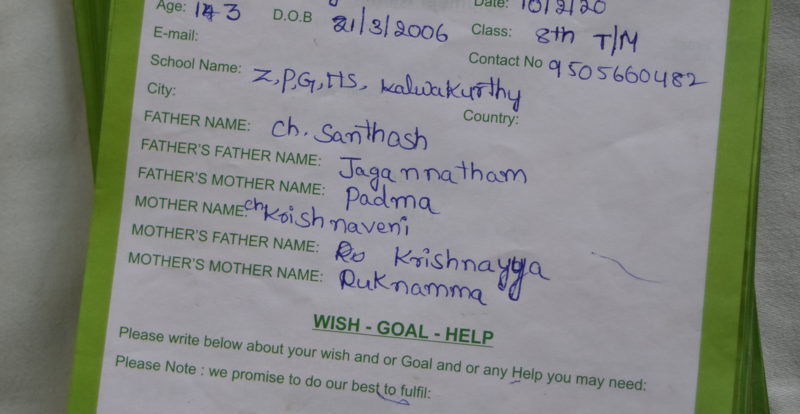 Age: 13 Date: 10/2/20
D.O.B 21/3/2006 Class: 8th T/M
E-mail: Contact No 9505660482
School Name: Z,P,G,HS, Kalwakurthy
City: Country:
FATHER NAME: ch. Santhosh
FATHER'S FATHER NAME: Jagannatham
FATHER'S MOTHER NAME: Padma
MOTHER NAME: ch Krishnaveni
MOTHER'S FATHER NAME: Krishnayya
MOTHER'S MOTHER NAME: Ruknamma
WISH - GOAL - HELP
Please write below about your wish and or Goal and or any Help you may need:
Please Note : we promise to do our best to fulfil: